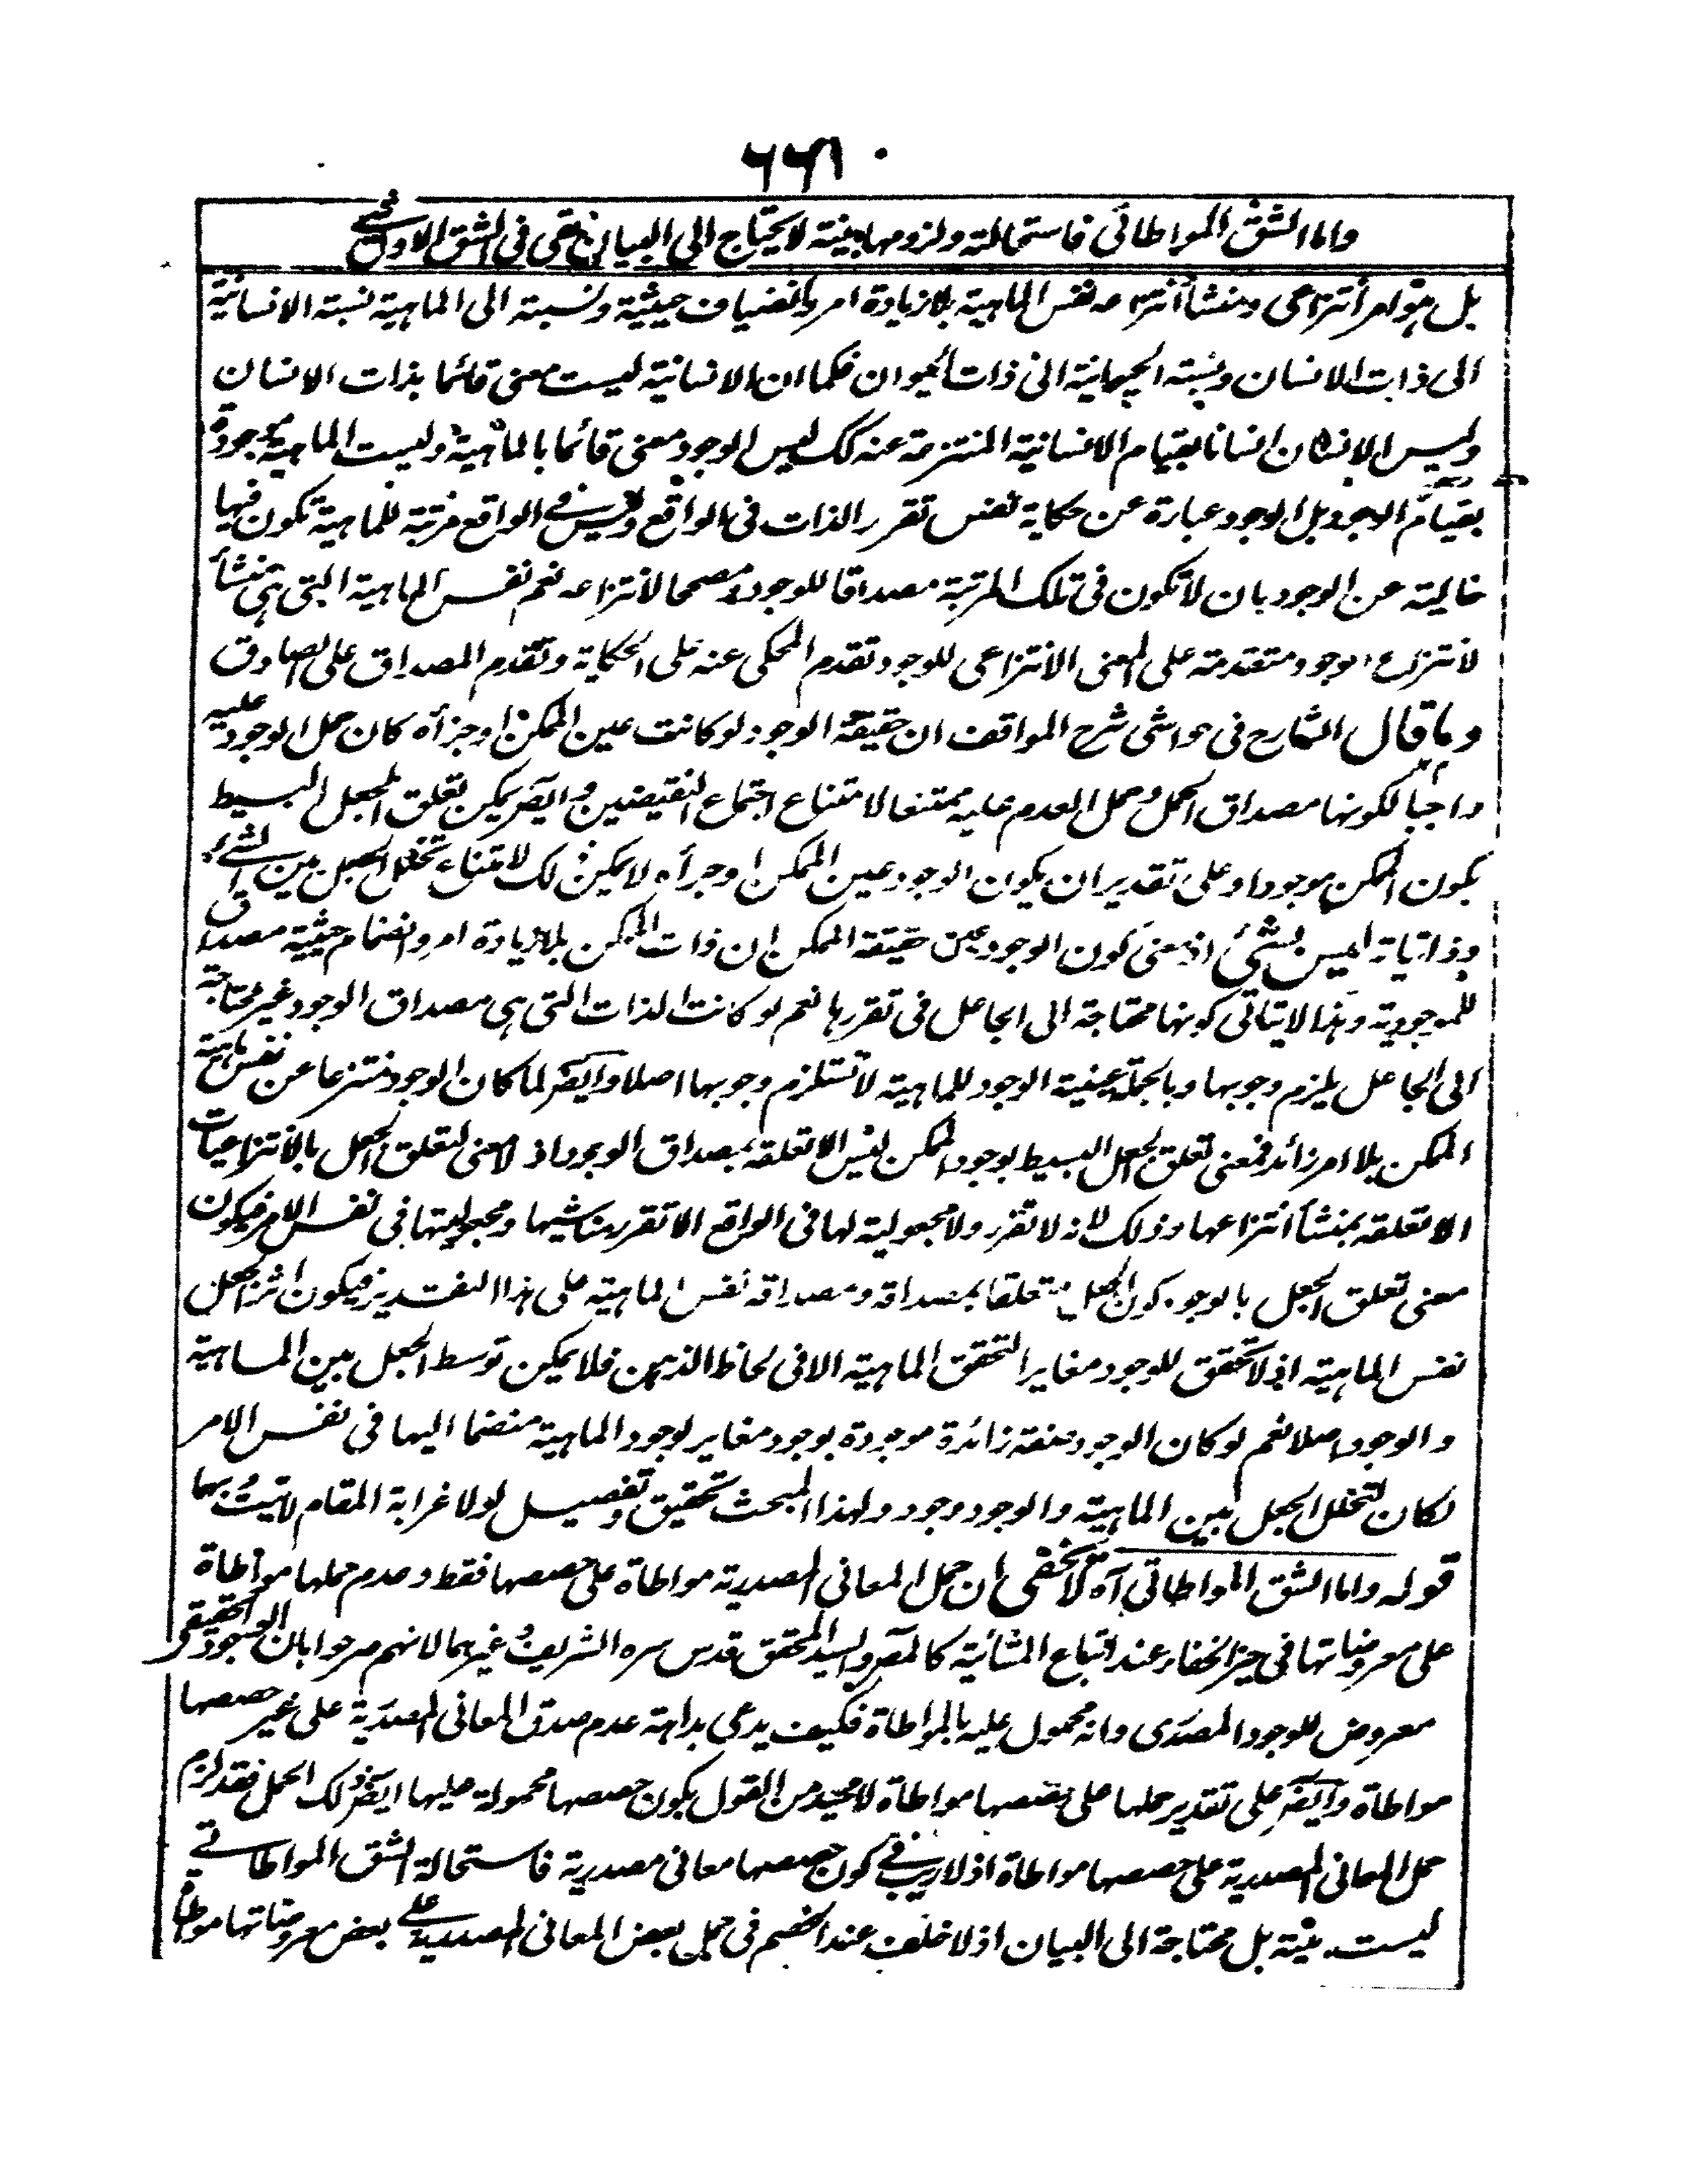 واما الشق المواطاتي فاستحالته ولزومها بينة لا يحتاج الى البيان بقي في الشق الاول شئ
بل هو امر انتزاعي ومنشأ انتزاعه نفس الماهية بلا زيادة امر وانضياف حيثية ونسبته الى الماهية نسبة الانسانية
الى ذات الانسان ونسبة الحيوانية الى ذات الحيوان فكما ان الانسانية ليست معنى قائما بذات الانسان
وليس الانسان انسانا بقيام الانسانية المنتزعة عنه كك ليس الوجود معنى قائما بالماهية وليست الماهية موجودة
بقيام الوجود بل الوجود عبارة عن حكاية نفس تقرر الذات في الواقع وليس في الواقع مرتبة للماهية تكون فيها
خالية عن الوجود بان لا تكون في تلك المرتبة مصداقا للوجود ومصححا لانتزاعه نعم نفس الماهية التي هي منشأ
لانتزاع الوجود متقدمة على المعنى الانتزاعي للوجود تقدم المحكي عنه على الحكاية وتقدم المصداق على الصادق
وما قال الشارح في حواشي شرح المواقف ان حقيقة الوجود لو كانت عين الممكن او جزأه كان حمل الوجود عليه
واجبا لكونها مصداق الحمل وحمل العدم عليه ممتنعا لامتناع اجتماع النقيضين وايضر يمكن تعلق الجعل البسيط
بكون الممكن موجودا وعلى تقدير ان يكون الوجود عين الممكن او جزأه لا يمكن ذلك لامتناع تخلل الجعل بين الشئ
وذاتياته ليس بشئ اذ معنى كون الوجود عين حقيقة الممكن ان ذات الممكن بلا زيادة امر وانضمام حيثية مصداق
للموجودية وهذا لا يتاتى كونها محتاجة الى الجاعل في تقررها نعم لو كانت الذات التي هي مصداق الوجود غير محتاجة
الى الجاعل يلزم وجوبها وبالجملة عينية الوجود للماهية لا تستلزم وجوبها اصلا وايضر لما كان الوجود منتزعا عن نفس ماهية
الممكن بلا امر زائد فمعنى تعلق الجعل البسيط بوجود الممكن ليس الا تعلقه بمصداق الوجود اذ لا معنى لتعلق الجعل بالانتزاعيات
الا تعلقه بمنشأ انتزاعها وذلك لانه لا تقرر ولا مجعولية لها في الواقع الا تقرر مناشيها ومجعوليتها في نفس الامر فيكون
معنى تعلق الجعل بالوجود كون الجعل متعلقا بمصداقه ومصداقه نفس الماهية على هذا التقدير فيكون اثر الجعل
نفس الماهية اذ لا تحقق للوجود مغايرا لتحقق الماهية الا في لحاظ الذهن فلا يمكن توسط الجعل بين الماهية
والوجود اصلا نعم لو كان الوجود صفة زائدة موجودة بوجود مغاير لوجود الماهية منضما اليها في نفس الامر
لكان لتخلل الجعل بين الماهية والوجود وجود ولهذا المبحث تحقيق وتفصيل لولا غرابة المقام لاتيت بها
قوله واما الشق المواطاتي آه لا يخفى ان حمل المعاني المصدرية مواطاة على حصصها فقط وعدم حملها مواطاة
على معروضاتها في حيز الخفاء عند اتباع المشائية كالمصر والسيد المحقق قدس سره الشريف وغيرهما لانهم صرحوا بان الوجود الحقيقي
معروض للوجود المصدري وانه محمول عليه بالمواطاة فكيف يدعى بداهة عدم صدق المعاني المصدرية على غير حصصها
مواطاة وايضر على تقدير حملها على حصصها مواطاة لا محيد من القول بكون حصصها محمولة عليها ايضر ذلك الحمل فقد لزم
حمل المعاني المصدرية على حصصها مواطاة اذ لا ريب في كون حصصها معاني مصدرية فاستحالة الشق المواطاتي
ليست بينة بل محتاجة الى البيان اذ لا خلف عند الخصم في حمل بعض المعاني المصدرية على بعض معروضاتها مواطاة